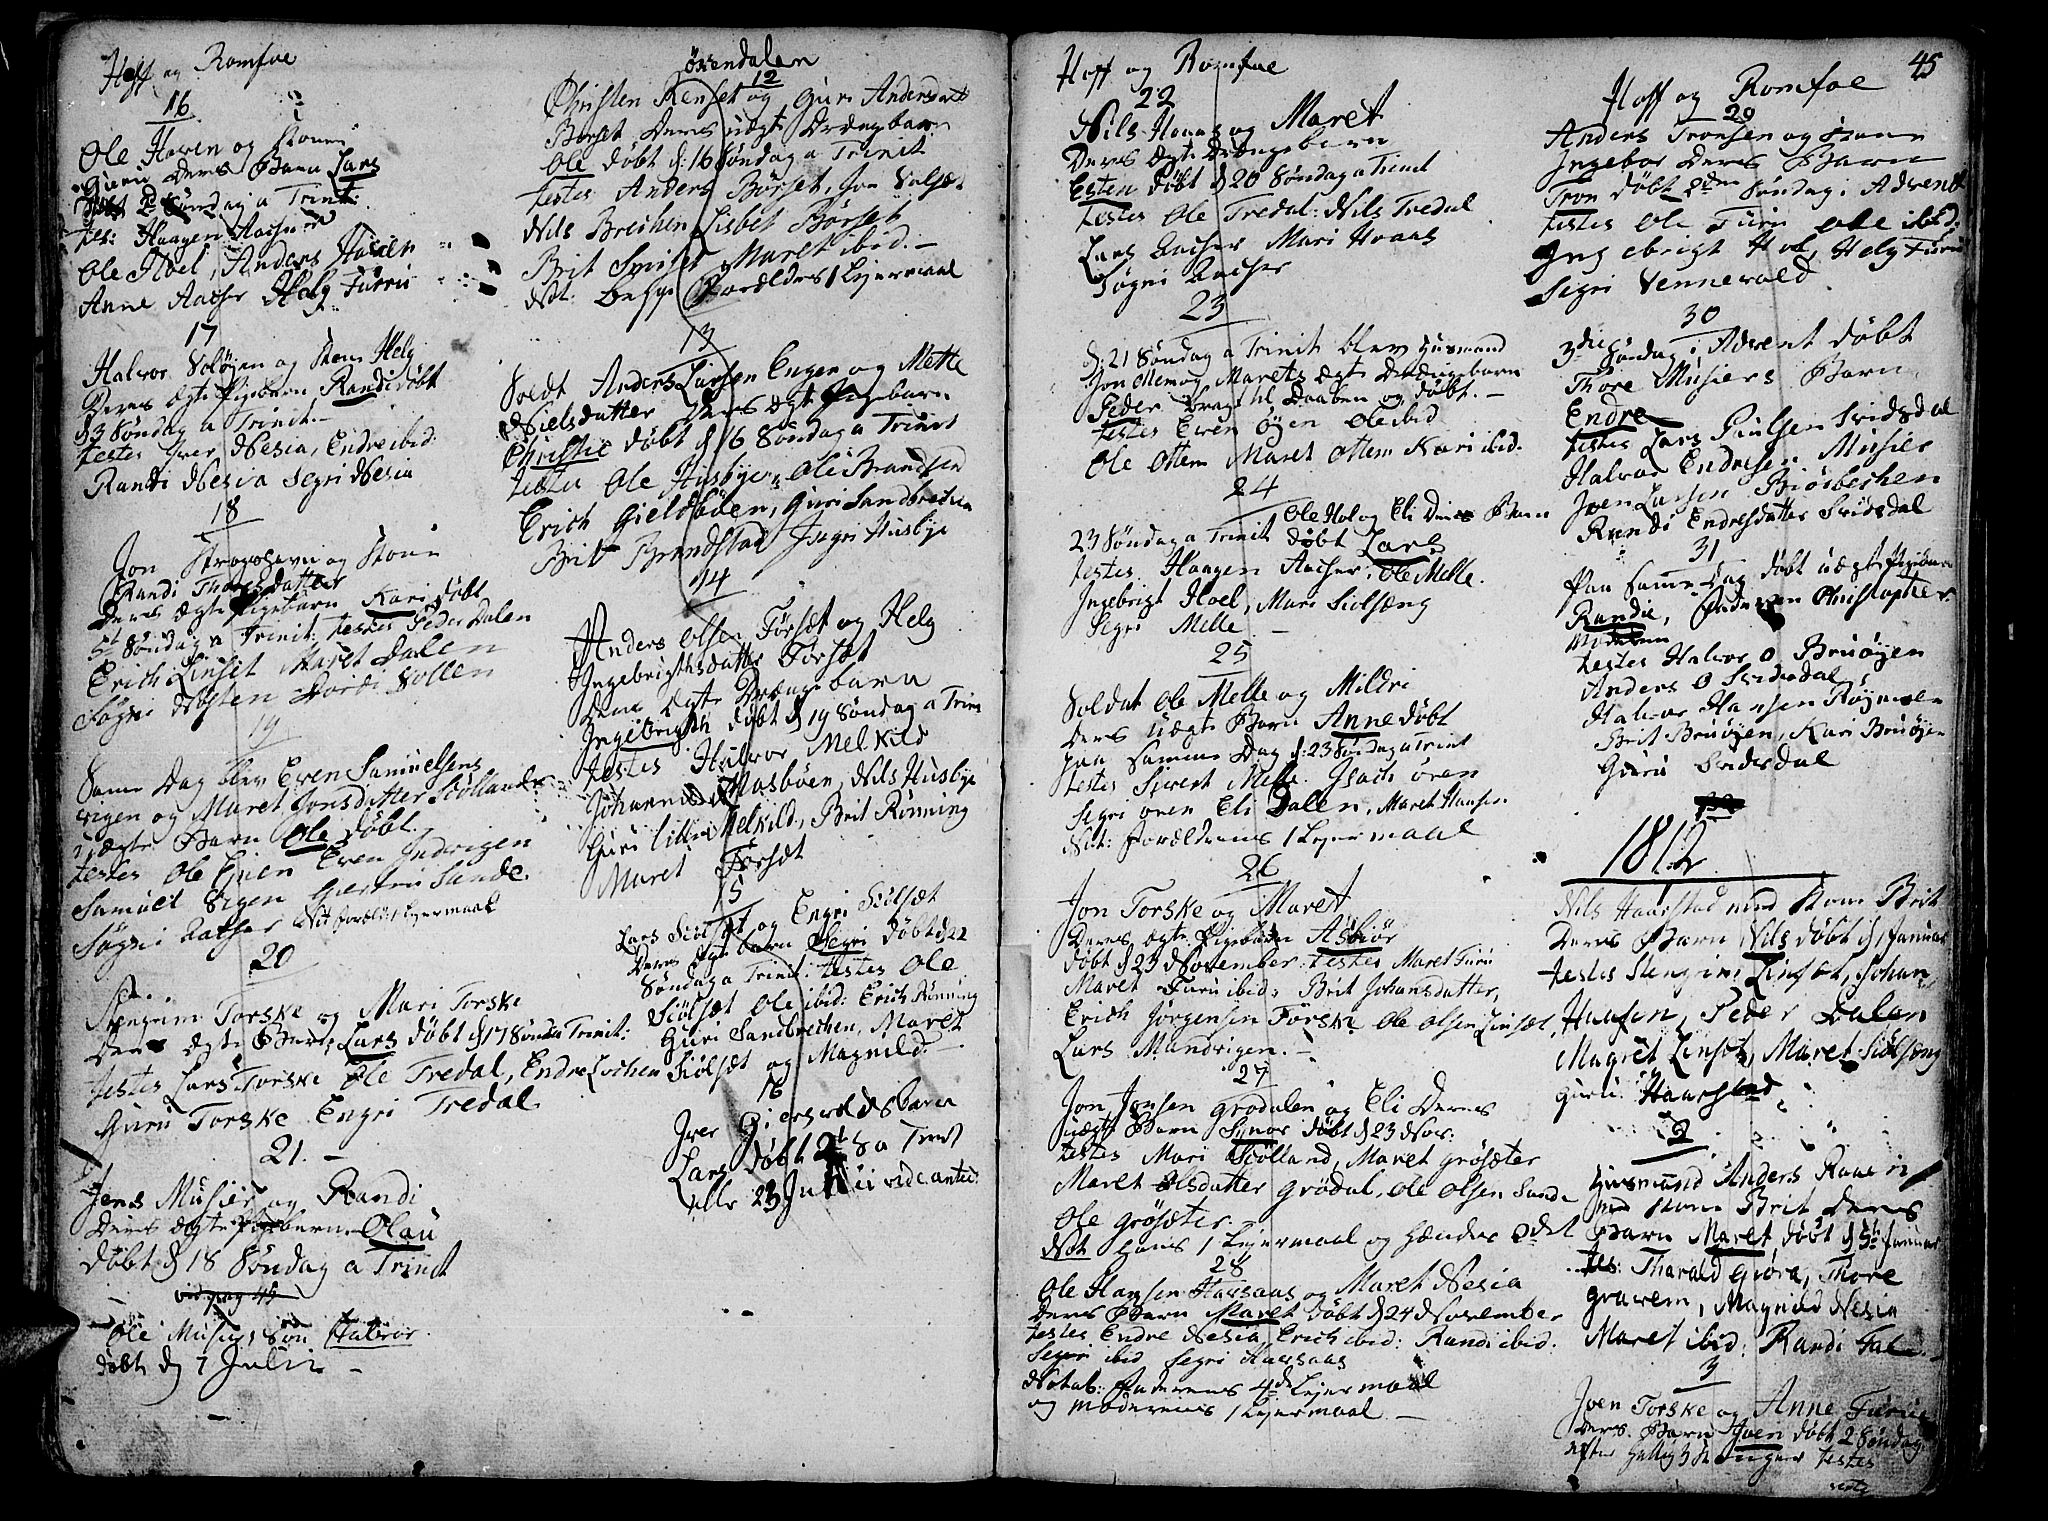 Hoff og Romfoe
16
Ole Hoven og Kone
Guru Deres Barn Lars
Døbt 2 Søndag a Trinit:
tes: Haagen Aachser
Ole Hoel, Anders Hoven
Anne Aachser Helg Furru
17
Halvor Soløyen og Kone Helg
Deres ægte Pigebarn Randi døbt
d 3 Søndag a Trinit.
testes Iver Nesia, Endre ibid:
Randi Nesia Segri Nesia
18
Jon og Kone
Randi Thoresdatter
Deres ægte Pigebarn Kari døbt
5te Søndag a Trinit: testes Peder Dalen
Erich Linset Maret Dalen
Søgni Dordi Vollen
19
Samme Dag blev Even Samuelsens
og Maret Jonsdatter
uægte Barn Ole døbt.
testes Ole Even
Samuel Gertru Sande.
Søgni Aachser Not foræld: 1 Lejermaal
20
Stengrim Torske og Mari Torske
Deres ægte Barn Lars døbt d 17 Sønda Trinit:
testes Lars Torske Ole Tredal, Endre Lochen
Guru Torske Engri Tredal
21.
Jens Musier og Randi
Deres ægte Pigebarn Olau
Døbt d 18 Søndag a Trinit
vid pag 45
Ole Musiers Søn Halvor
døbt d 7 Julii
Øxendalen
12
Christen Renset og Guri Andersdt
Børset Deres uægte Drængbarn
Ole døbt d: 16 Søndag a Trinit
testes Anders Børset, Jon
Nils Brechen Lisbet Børset
Brit Maret ibid.
Not: begge Forældres 1 Lejermaal
13
Soldt Anders Larsen Engen og Mette
Nielsdatter Deres ægte Pigebarn
Christie døbt d 16 Søndag a Trinit
testes Ole Husbye, Ole Brandstad
Erich Gieldbøen, Guri Sandbrechen
Brit Brandstad Ingri Husbye
14
Anders Olsen Forsæt og Helg
Ingebrigthsdatter Forsæt
Deres ægte Drænge barn
Ingebrigth døbt d 19 Søndag a Trin
testes Halvor Melkild
Johannes Masbøen, Nils Husbye
Guri lille Melkild, Brit Rønning
Maret Forsæt
15
Lars Siølsæt og Engri Siølsæt
Deres Pige barn Segri døbt d 22
Søndag a Trinit: testes Ole
Siølsæt Ole ibid: Erich Rønning
Guri Sandbrechen, Maret
Siølsæt og Magnild.
16
Iver Gierswolds barn
Lars døbt 2 S a Trin
eller 23 Julii vide antic:
Hoff og Romfoe
22
Nils Hoaas og Maret
Deres ægte Drængebarn
Esten døbt d 20 Søndag a Trinit
testes Ole Tredal: Nils Tredal
Lars Aachser Mari Hoaas
Søgni Aachser
23
d: 21 Søndag a Trinit blev Husmand
Jon Mem og Marets ægte Drængebarn
Peder bragt til Daaben og døbt.
testes Even Øyen Ole ibid
Ole Ottem Maret Ottem Kari ibid.
24
Ole Hol og Eli Deres Barn
23 Søndag a Trinit døbt Lars
testes Haagen Aachser, Ole Melle.
Ingebrigt Hoel, Mari Siolsæng
Segri Melle
25
Soldat Ole Melle og Mildri
Deres uægte Barn Anne døbt
paa samme Dag d: 23 Søndag a Trinit
testes Siwert Melle. Isach Øren
Segri Øren Eli Dalen, Maret Hansen
Not: Forældrenes 1 Lejermaal
26
Jon Torske og Maret
Deres ægte Pigebarn Asbiør
døbt d 23 November: testes Maret Furu
Maret Furu ibid: Brit Johansdatter,
Erich Jørgensen Torske Ole Olsen Linset,
Lars Mandrigen.
27
Jon Jonsen Grødalen og Eli Deres
uægte Barn Synor døbt d 23 Nov:
testes Mari Siolland, Maret Grøsæter
Maret Olsdatter Grødal, Ole Olsen Sande
Ole Grøsæter.
Not Hans 1 Lejermaal og hendes 2det
28
Ole Hansen Harsaas og Maret Nesia
Deres Barn Maret døbt d 24 November
testes Endre Nesia, Erich ibid: Randi ibid.
Segri ibid Segri Harsaas
Notab: Faderens 4de Lejermaal
og moderens 1 Lejermaal
45
Hoff og Romfoe
29
Anders Tronsen og Kone
Ingebor Deres Barn
Tron døbt 2den Søndag i Advent
testes Ole Furu Ole ibid.
Ingebrigt Hol, Helg Furu
Segri Vennevold.
30
3die Søndag i Advent døbt
Thore Musiers Barn
Endre
testes Lars Paulsen Svisdal
Halvor Endresen Musier
Joen Larsen Biørbechen
Randi Endresdatter Svisdal
31
Paa samme Dag døbt uægte Pigebarn
Randie, Faderen Christopher
Moderen
testes Halvor O Bruøyen
Anders O Svisdal
Halvor Hansen Røymoen
Brit Bruøyen, Kari Bruøyen
Guru Svisdal
1812
Nils Haarstad med Kone Brit
Deres Barn Nils døbt d 1 Januar
testes Stengrim Linset, Johan
Haasen, Peder Dalen
Magret Linset, Maret Siolsæng
Guru Haarstad
2
Husmand Anders Raaen
med Kone Brit Deres
Barn Maret døbt d 5te Januar
tes: Tharald Gjøra, Thore
Gravem, Magnild Nesia
Maret ibid: Randi Fale
3
Joen Torske og Anne Furue
Deres Barn Joen døbt 2 Søndag
efter Hellig 3 Konger testes